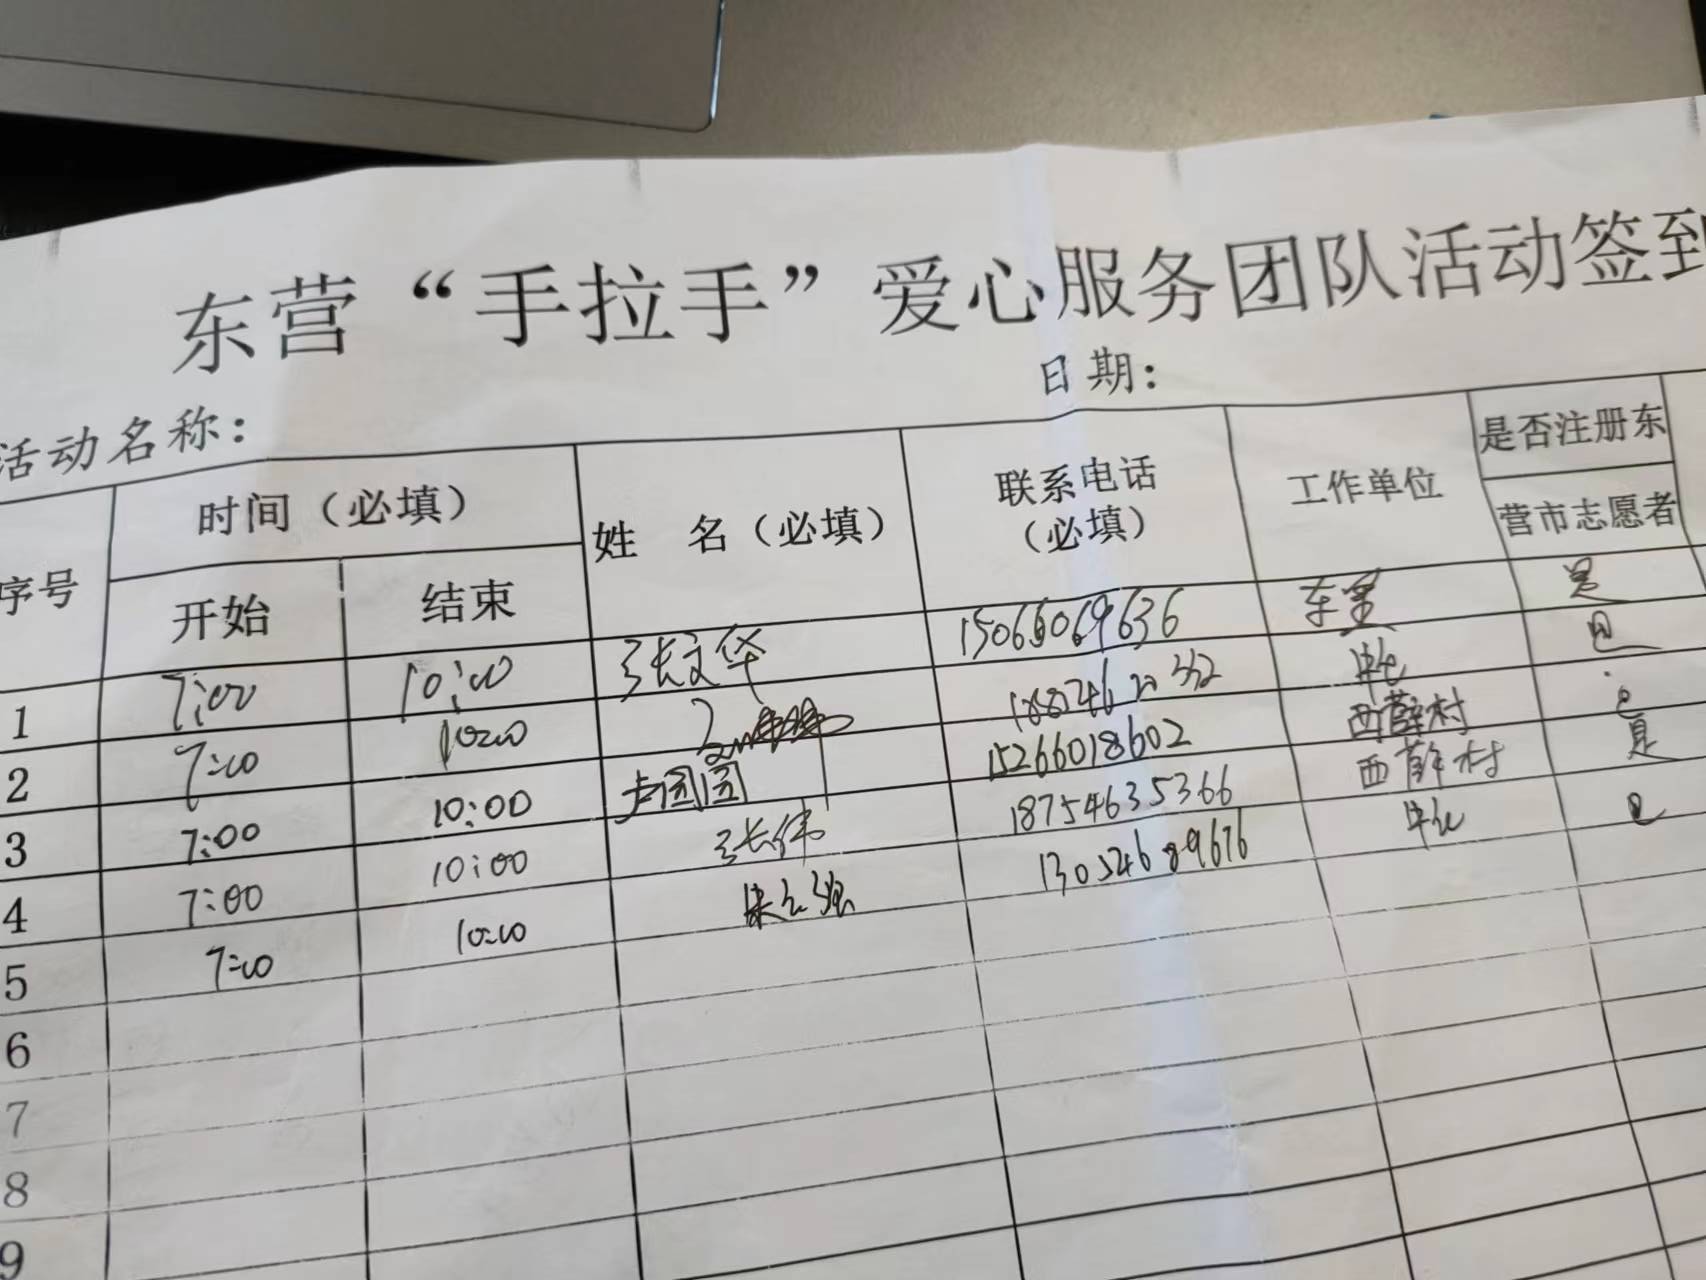 东营“手拉手”爱心服务团队活动签到
活动名称： 日期：
序号 时间（必填） 姓 名（必填） 联系电话（必填） 工作单位 是否注册东营市志愿者
开始 结束
1 7:00 10:00 张文华 15066069636 东营 是
2 7:00 10:00 是
3 7:00 10:00 卢圆圆 15266018602 西薛村
4 7:00 10:00 张伟 18754635366 西薛村 是
5 7:00 10:00 13054689676
6
7
8
9